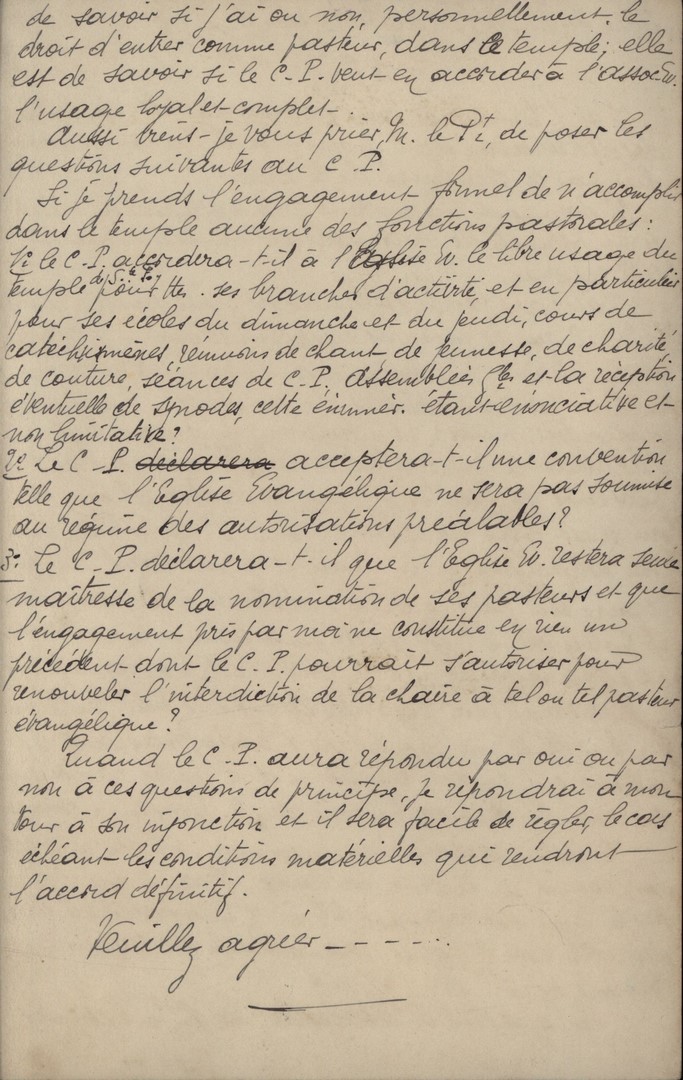 de savoir si j'ai ou non, personnellement, le
droit d'entrer comme pasteur, dans le temple; elle
est de savoir si le C. P. veut en accorder à l'assoc. Ev.
l'usage loyal et complet.
Aussi viens-je vous prier, M. le Pt, de poser les
questions suivantes au C. P.
Si je prends l'engagement formel de n'accomplir
dans le temple aucune des fonctions pastorales:
1e le C. P. accordera-t-il à l'Eglise Ev. le libre usage du
temple pour ttes ses branches d'activité, et en particulier
pour ses écoles du dimanche et du jeudi, cours de
catéchumènes, réunions de chant, de jeunesse, de charité
de couture, séances de C. P. assemblées gles et la réception
éventuelle de synodes, cette énumér. étant énonciative et
non limitative?
2e Le C. P. déclarera acceptera-t-il une convention
telle que l'Eglise Evangélique ne sera pas soumise
au régime des autorisations préalables?
3e Le C. P. déclarera-t-il que l'Eglise Ev. restera seule
maîtresse de la nomination de ses pasteurs et que
l'engagement pris par moi ne constitue en rien un
précédent dont le C. P. pourrait s'autoriser pour
renouveler l'interdiction de la chaire à tel ou tel pasteur
évangélique?
Quand le C. P. aura répondu par oui ou par
non à ces questions de principe, je répondrai à mon
tour à son injonction et il sera facile de régler, le cas
échéant les conditions matérielles qui rendront
l'accord définitif.
Veuillez agréer - - - - ...